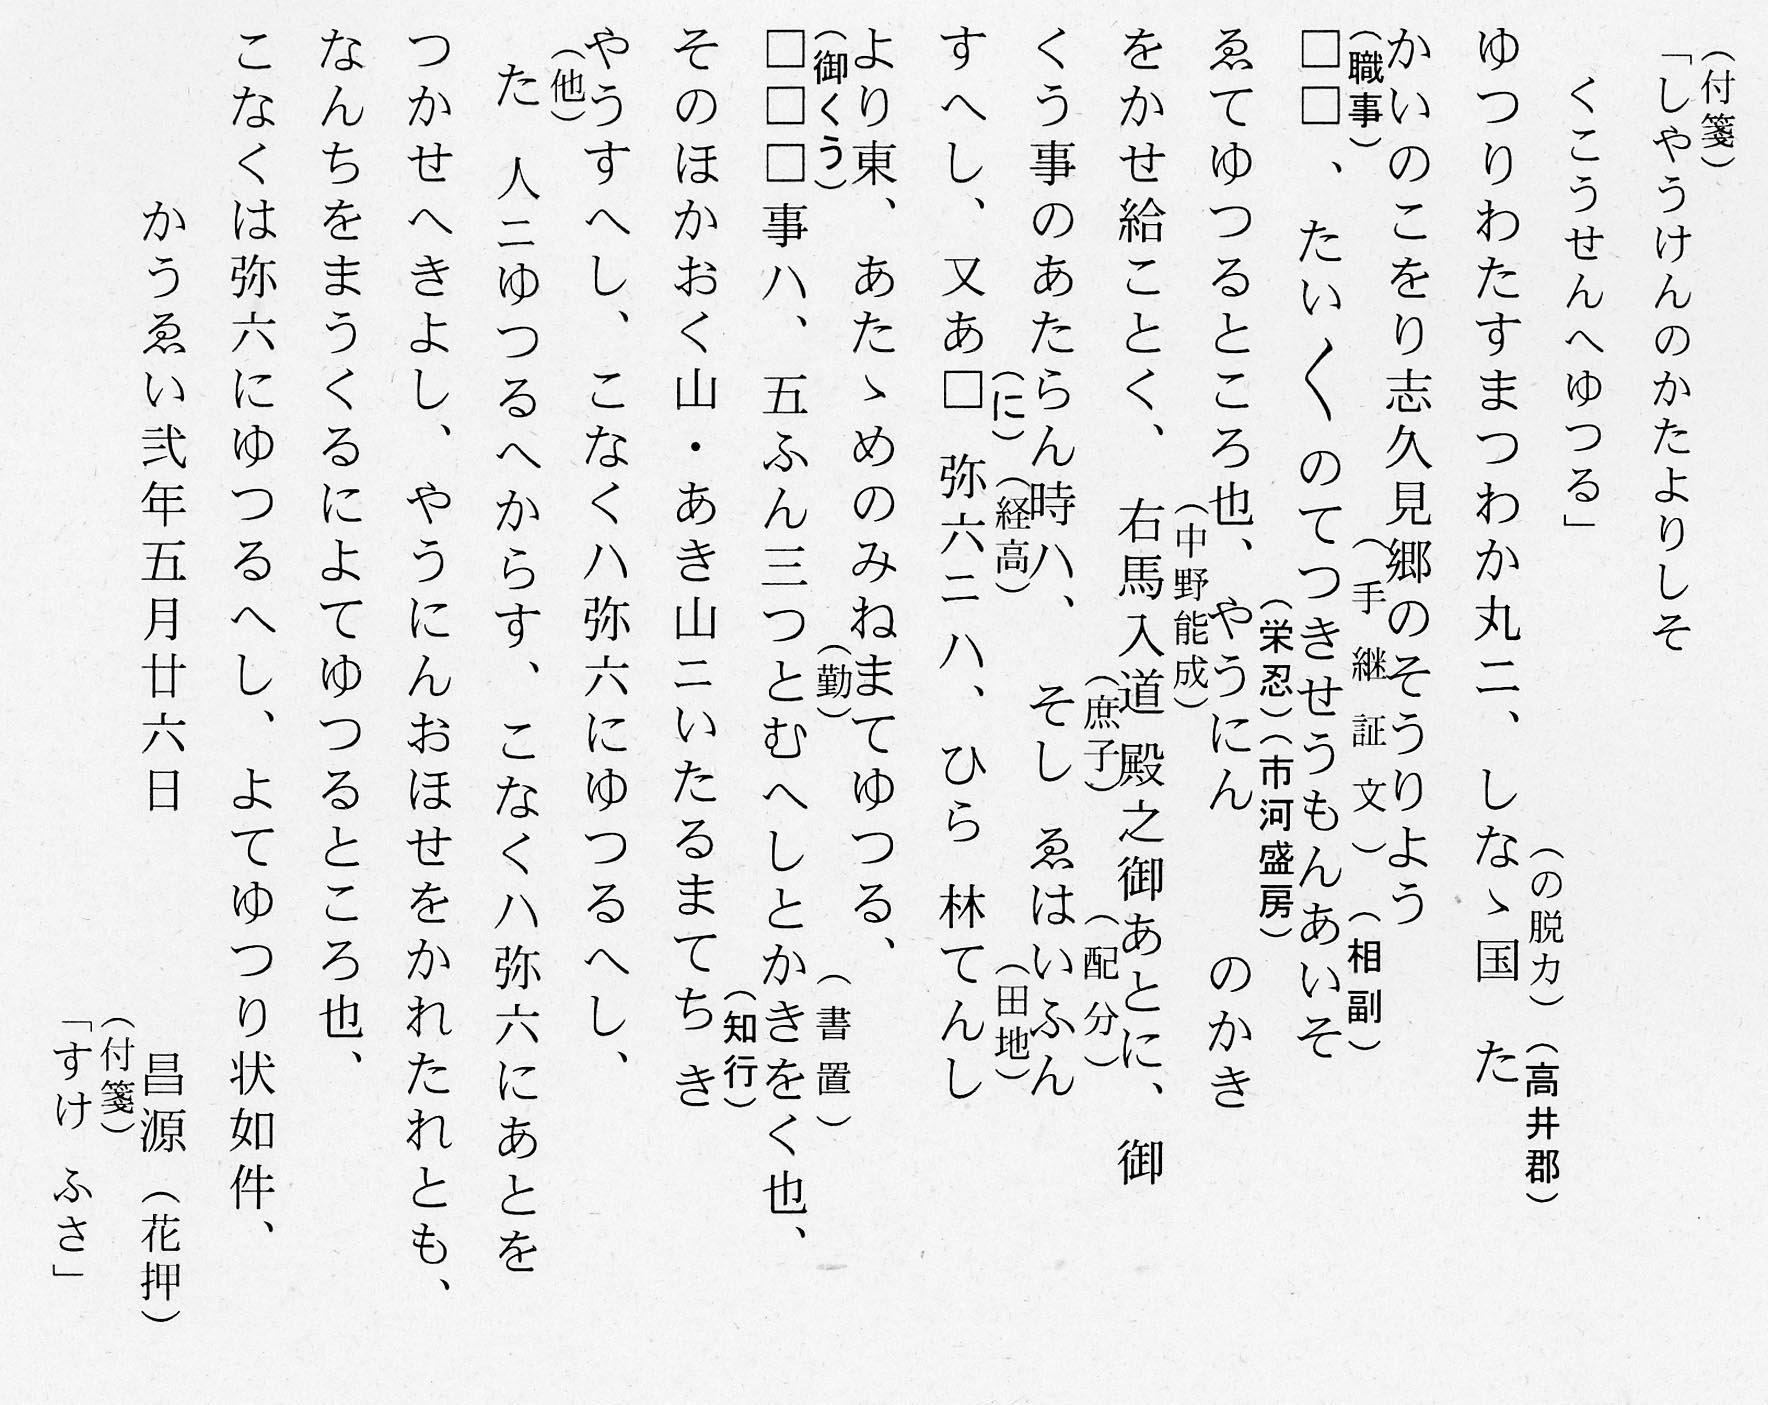 (付箋)
「しやうけんのかたよりしそ
くこうせんへゆつる」
ゆつりわたすまつわか丸ニ、しなゝ国 た
(の脱カ)
(高井郡)
かいのこをり志久見郷のそうりよう
□□、たい〱のてつきせうもんあいそ
(職事)
(手継証文)
(相副)
ゑてゆつるところ也、やうにん のかき
(栄忍)(市河盛房)
をかせ給ことく、右馬入道殿之御あとに、御
(中野能成)
くう事のあたらん時ハ、そし ゑはいふん
(庶子)
(配分)
すへし、又あ□弥六ニハ、ひら 林てんし
(に)
(経高)
(田地)
より東、あたゝめのみねまてゆつる、
□□□事ハ、五ふん三つとむへしとかきをく也、
(御くう)
(勤)
(書置)
そのほかおく山・あき山ニいたるまてちき
(知行)
やうすへし、こなくハ弥六にゆつるへし、
た 人ニゆつるへからす、こなくハ弥六にあとを
(他)
つかせへきよし、やうにんおほせをかれたれとも、
なんちをまうくるによてゆつるところ也、
こなくは弥六にゆつるへし、よてゆつり状如件、
かうゑい弐年五月廿六日
昌源(花押)
(付箋)
「すけ ふさ」